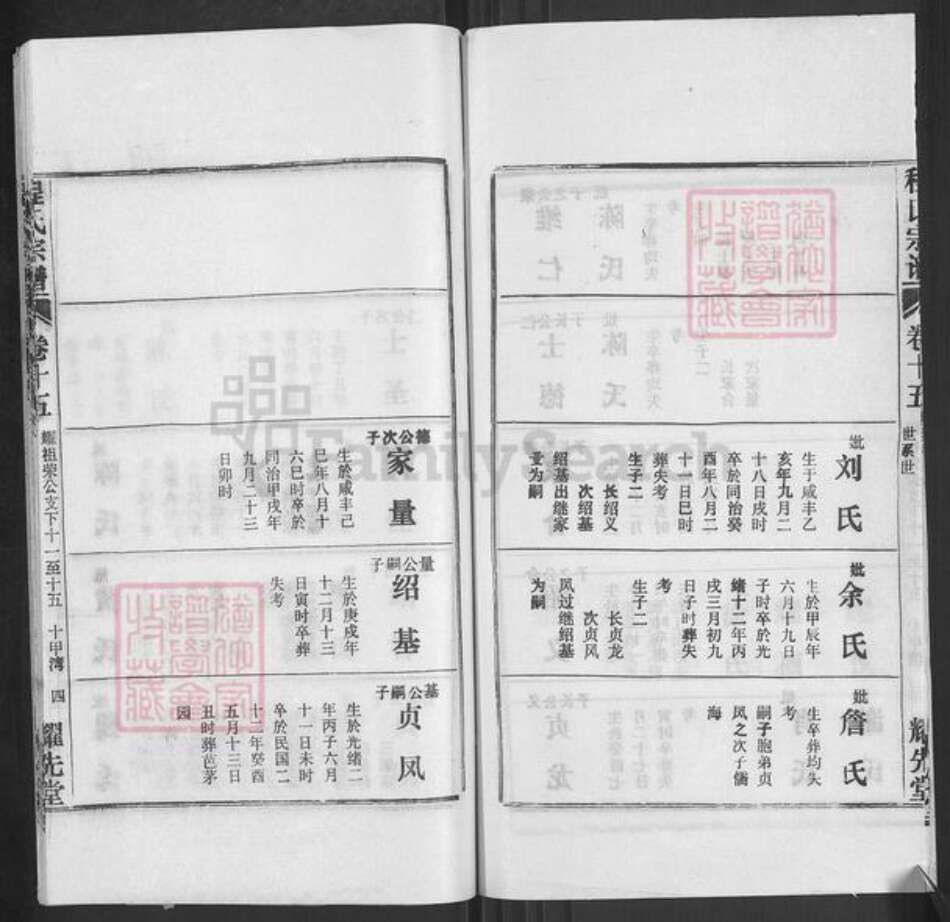 程氏宗谱
卷十五
世系世
耀先堂
妣刘氏
生于咸丰乙
亥年九月二
十八日戌时
卒於同治癸
酉年八月二
十一日巳时
葬失考
生子二
长绍义
次绍基
绍基出继家
量为嗣
妣余氏
生於甲辰年
六月十九日
子时卒於光
绪十二年丙
戌三月初九
日子时葬失
考
生子二
长贞龙
次贞凤
凤过继绍基
为嗣
妣詹氏
生卒葬均失
考
嗣子胞弟贞
凤之次子儒
海
德公次子
家量
生於咸丰己
巳年八月十
六巳时卒於
同治甲戌年
九月二十三
日卯时
量公嗣子
绍基
生於庚戌年
十二月十三
日寅时卒葬
失考
基公嗣子
贞凤
生於光绪二
年丙子六月
十一日未时
卒於民国二
十二年癸酉
五月十三日
丑时葬芭茅
园
程氏宗谱
卷十五
耀祖荣公支下十一至十五
十甲湾
四
耀先堂
FamilySearch